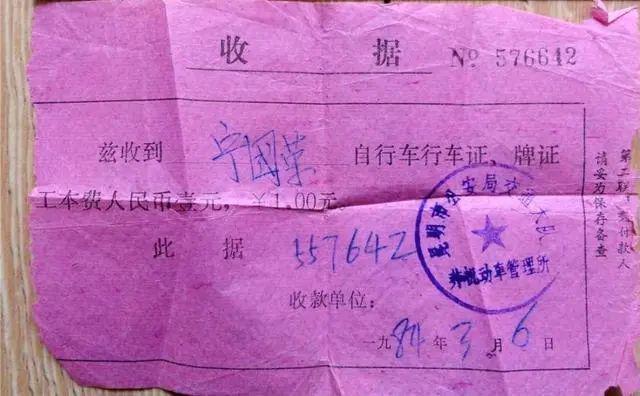 收 据 № 576642
兹收到 宁国荣 自行车行车证、牌证
工本费人民币壹元，￥1.00元。
此 据 557642
收款单位：
一九84年3月6日
昆明市公安局交通大队
非机动车管理所
第二联：交付款人
请妥为保存备查